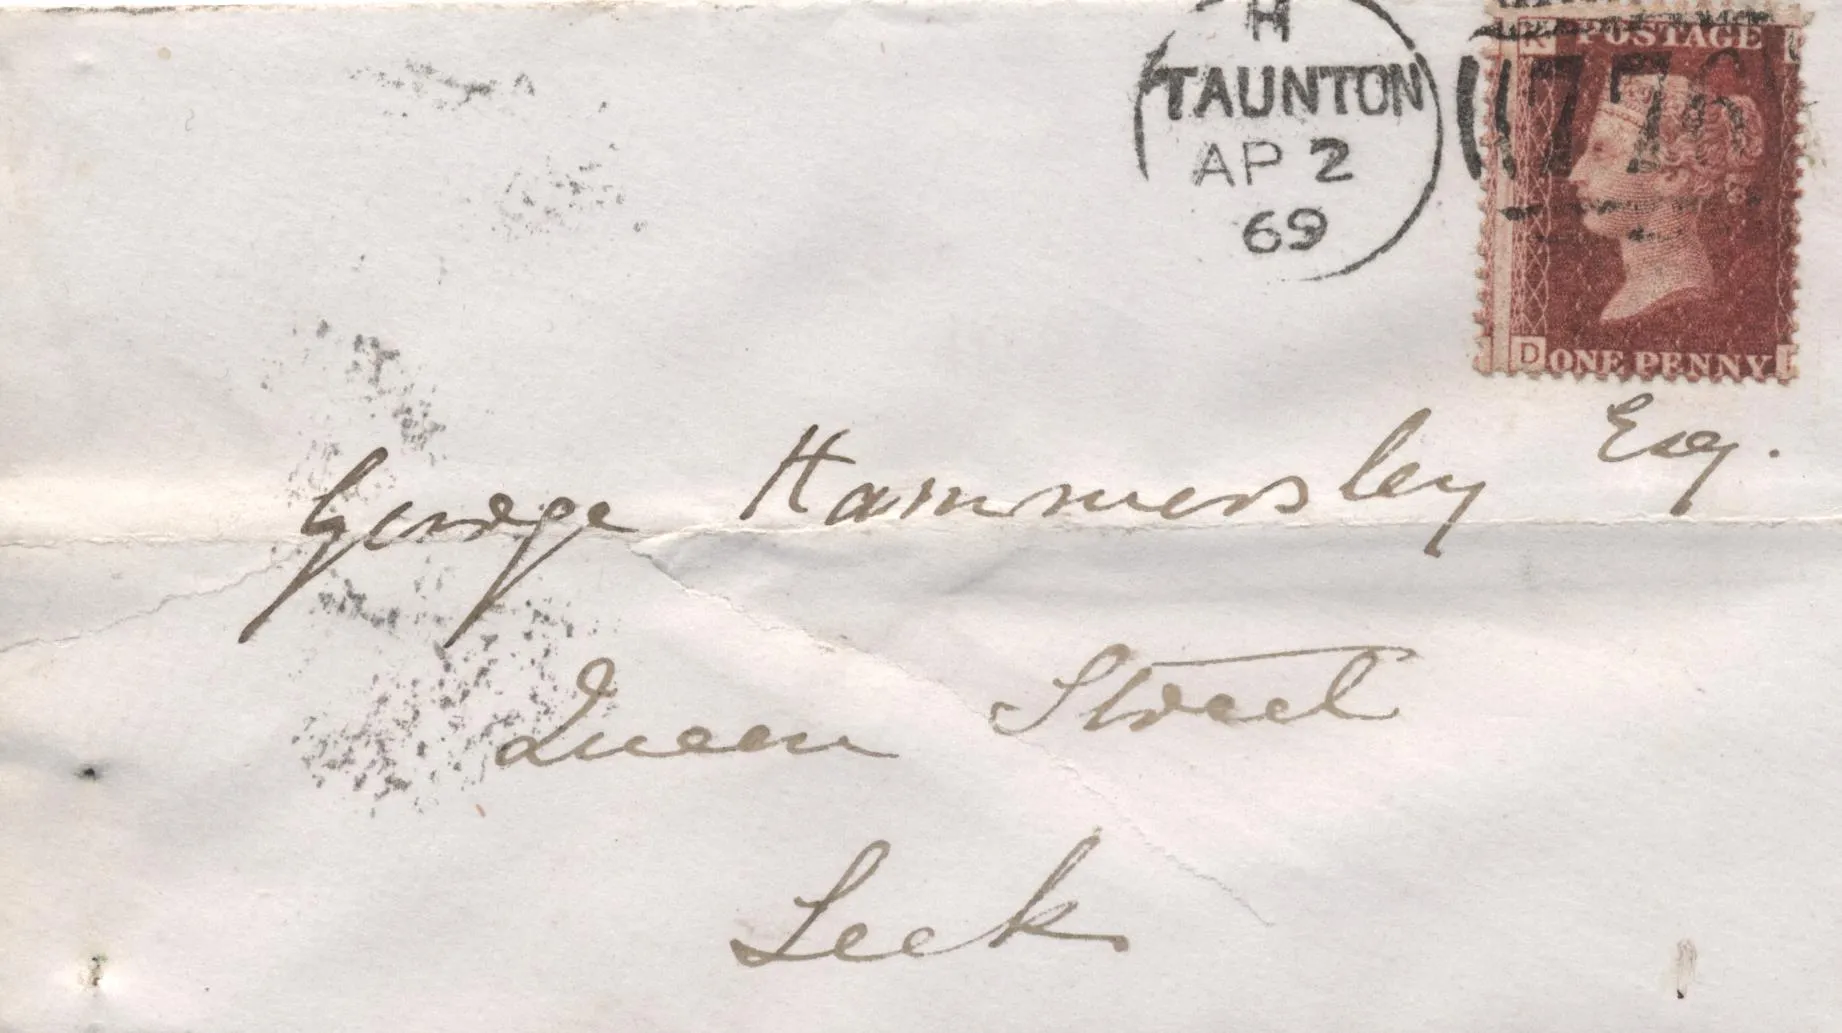 H
TAUNTON
AP 2
69
776
K POSTAGE
D ONE PENNY
George Hammersley Esq.
Queen Street
Leek